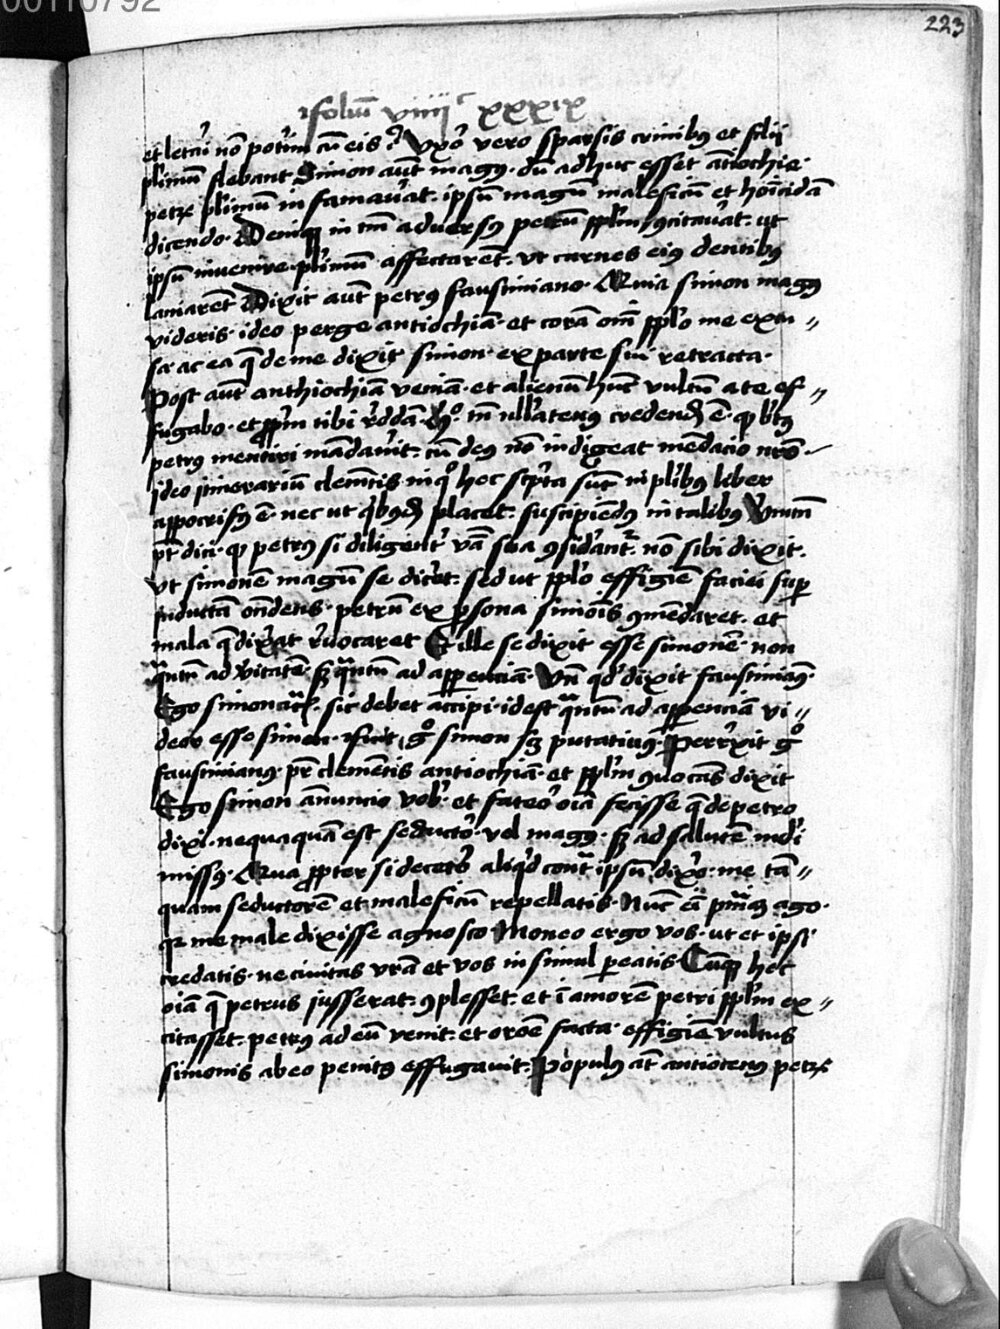 00110792
223
folium viiijc xxxix
et letari nō potim cū eis? Uxor vero sparsis crinibus et filii
plimū flebant Simon aut magus dū adhuc esset antiochie
petrū plimū infamavat ipsum magū maleficū et homicidā
dicendo Deniqz in tm̄ adversus petrū pplm 9citavat ut
ipsū invenire plimū affectarēt ut carnes eius dentibus
laniarēt Dixit aut petrus faustiniano Quia simon magus
videris ideo perge antiochiā et corā omi pplo me excu
sa ac ea que de me dixit simon ex parte sui retracta
Post aut anthiochiā veniā et alienū hunc vultū a te ef
fugabo et pprm tibi reddā Hoc tm̄ nullatenus credendū ē qd btus
petrus mentiri mādavit cū deus nō indigeat mēdacio nr̄o
ideo itinerariū clemētis in quo hoc scripta sunt in plibus liber
appocrifus ē nec ut quibusdā placet suscipiēdus in talibus Verum
pt dici qd petrus si diligenter vba sua 9siderant nō sibi dixit
ut simonē magū se diceret sed ut pplo effigiē faciei sup
inductā ondens petrū ex psona simonis 9mēdaret et
mala que dixerat revocaret Et ille se dixit esse simonē non
quātū ad veritatē sz quātū ad apparenciā Un qd dixit faustinianus
Ego simon sic debet accipi id est quātū ad apparenciā vi
deor esse simon fuit g simon sz putativus Perrexit g
faustinianus pr clemētis antiochiā et pplm 9vocās dixit
Ego simon annuncio vobis et fateor oīa fecisse que de petro
dixi nequaquā est seductor vel magus sz ad salutē mdi
missus Qua ppter si decetero aliqd contra ipsū dixero me tā
quam seductorē et maleficū repellatis Nunc eī pniaz ago
qz me male dixisse agnosco Moneo ergo vos ut et ipsi
credatis ne civitas vr̄a et vos insimul pereatis Cūqz hec
oīa que petrus jusserat 9plesset et ī amorē petri pplm ex
citasset petrus ad eū venit et oroē facta effigiē vultus
simonis ab eo penitus effugavit Populus at antiocenus petrū